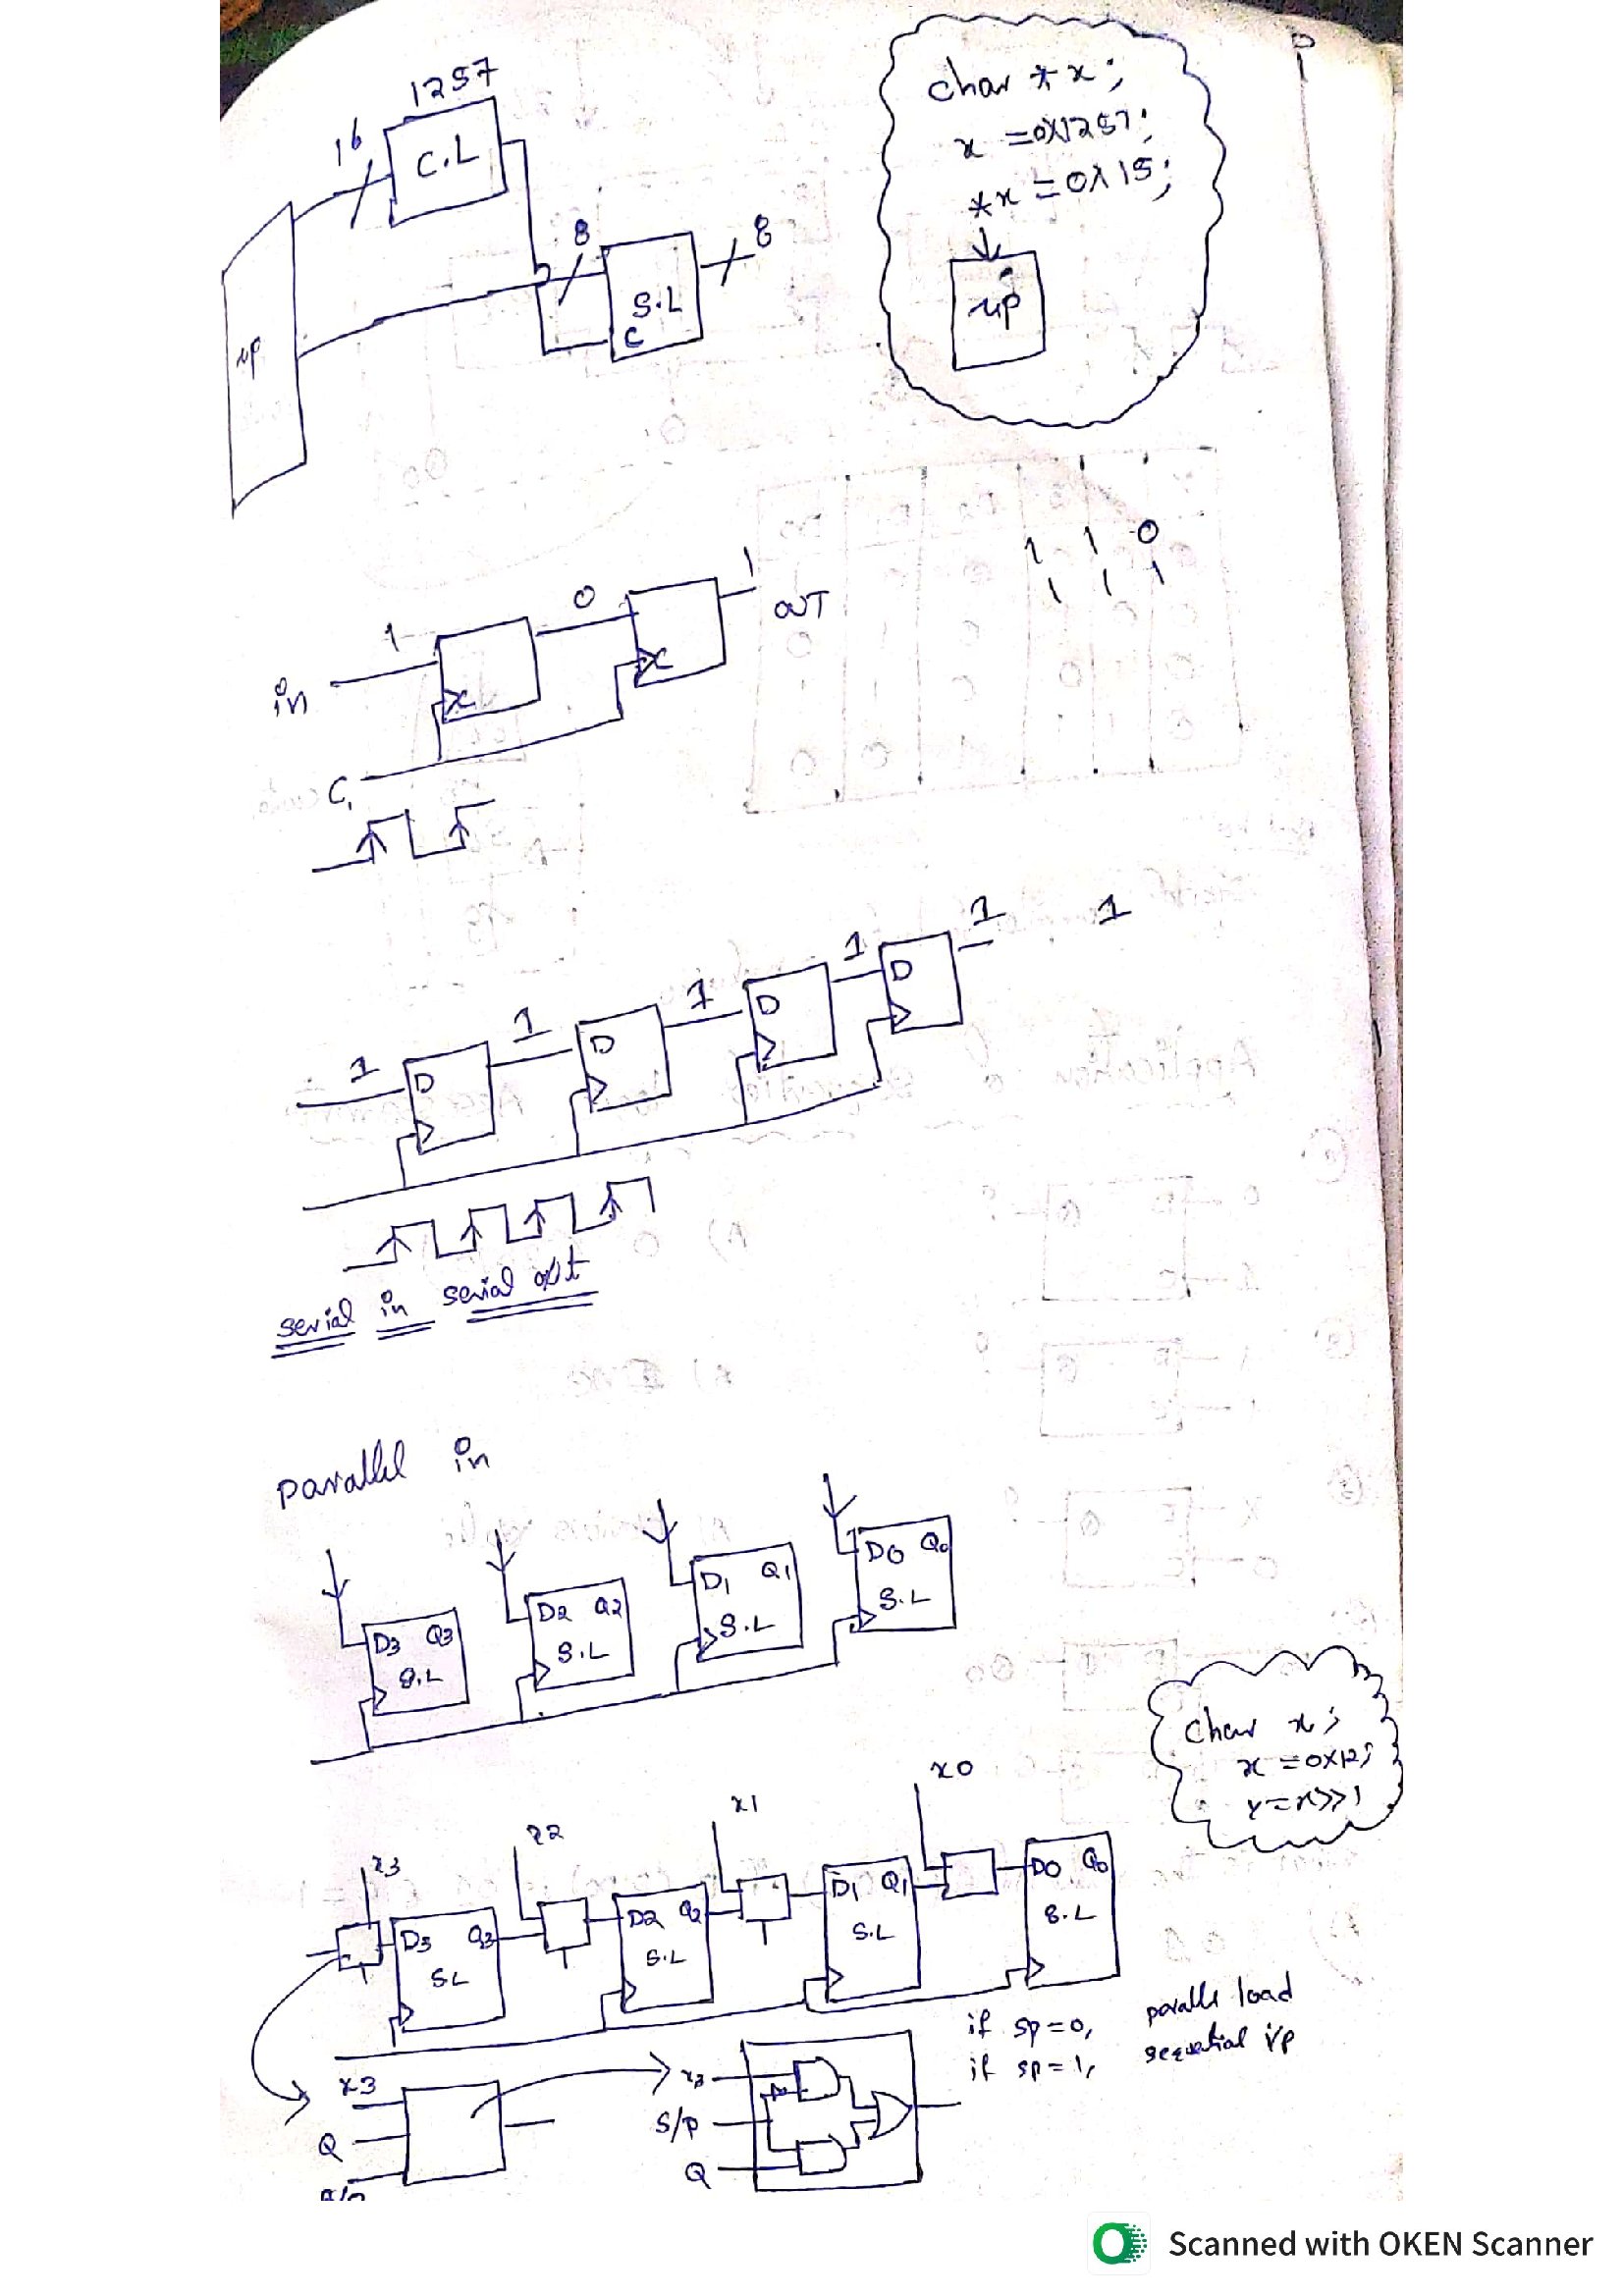 1257
16
C.L
8
8
S.L
C
up
char *x;
x = 0x1257;
*x = 0x15;
up
1 1 0
1 1 1
in
1
0
1
OUT
C
C
C
1 1 1 1 1 1
D D D D
serial in serial out
parallel in
D3 Q3
S.L
D2 Q2
S.L
D1 Q1
S.L
D0 Q0
S.L
char x;
x = 0x12;
y = x >> 1
x3
x2
x1
x0
D3 Q3
S.L
D2 Q2
S.L
D1 Q1
S.L
D0 Q0
S.L
if sp = 0, parallel load
if sp = 1, sequential i/p
x3
Q
x3
S/P
Q
Scanned with OKEN Scanner